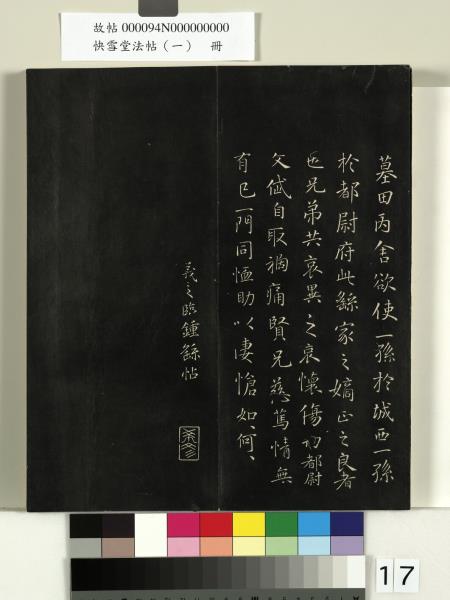 故帖 000094N000000000
快雪堂法帖（一） 冊
墓田丙舍欲使一孫於城西一孫
於都尉府此繇家之嫡正之良者
也兄弟共哀異之哀懷傷切都尉
文岱自取禍痛賢兄慈篤情無
有已一門同恤助以悽愴如、何、
羲之臨鍾繇帖
17